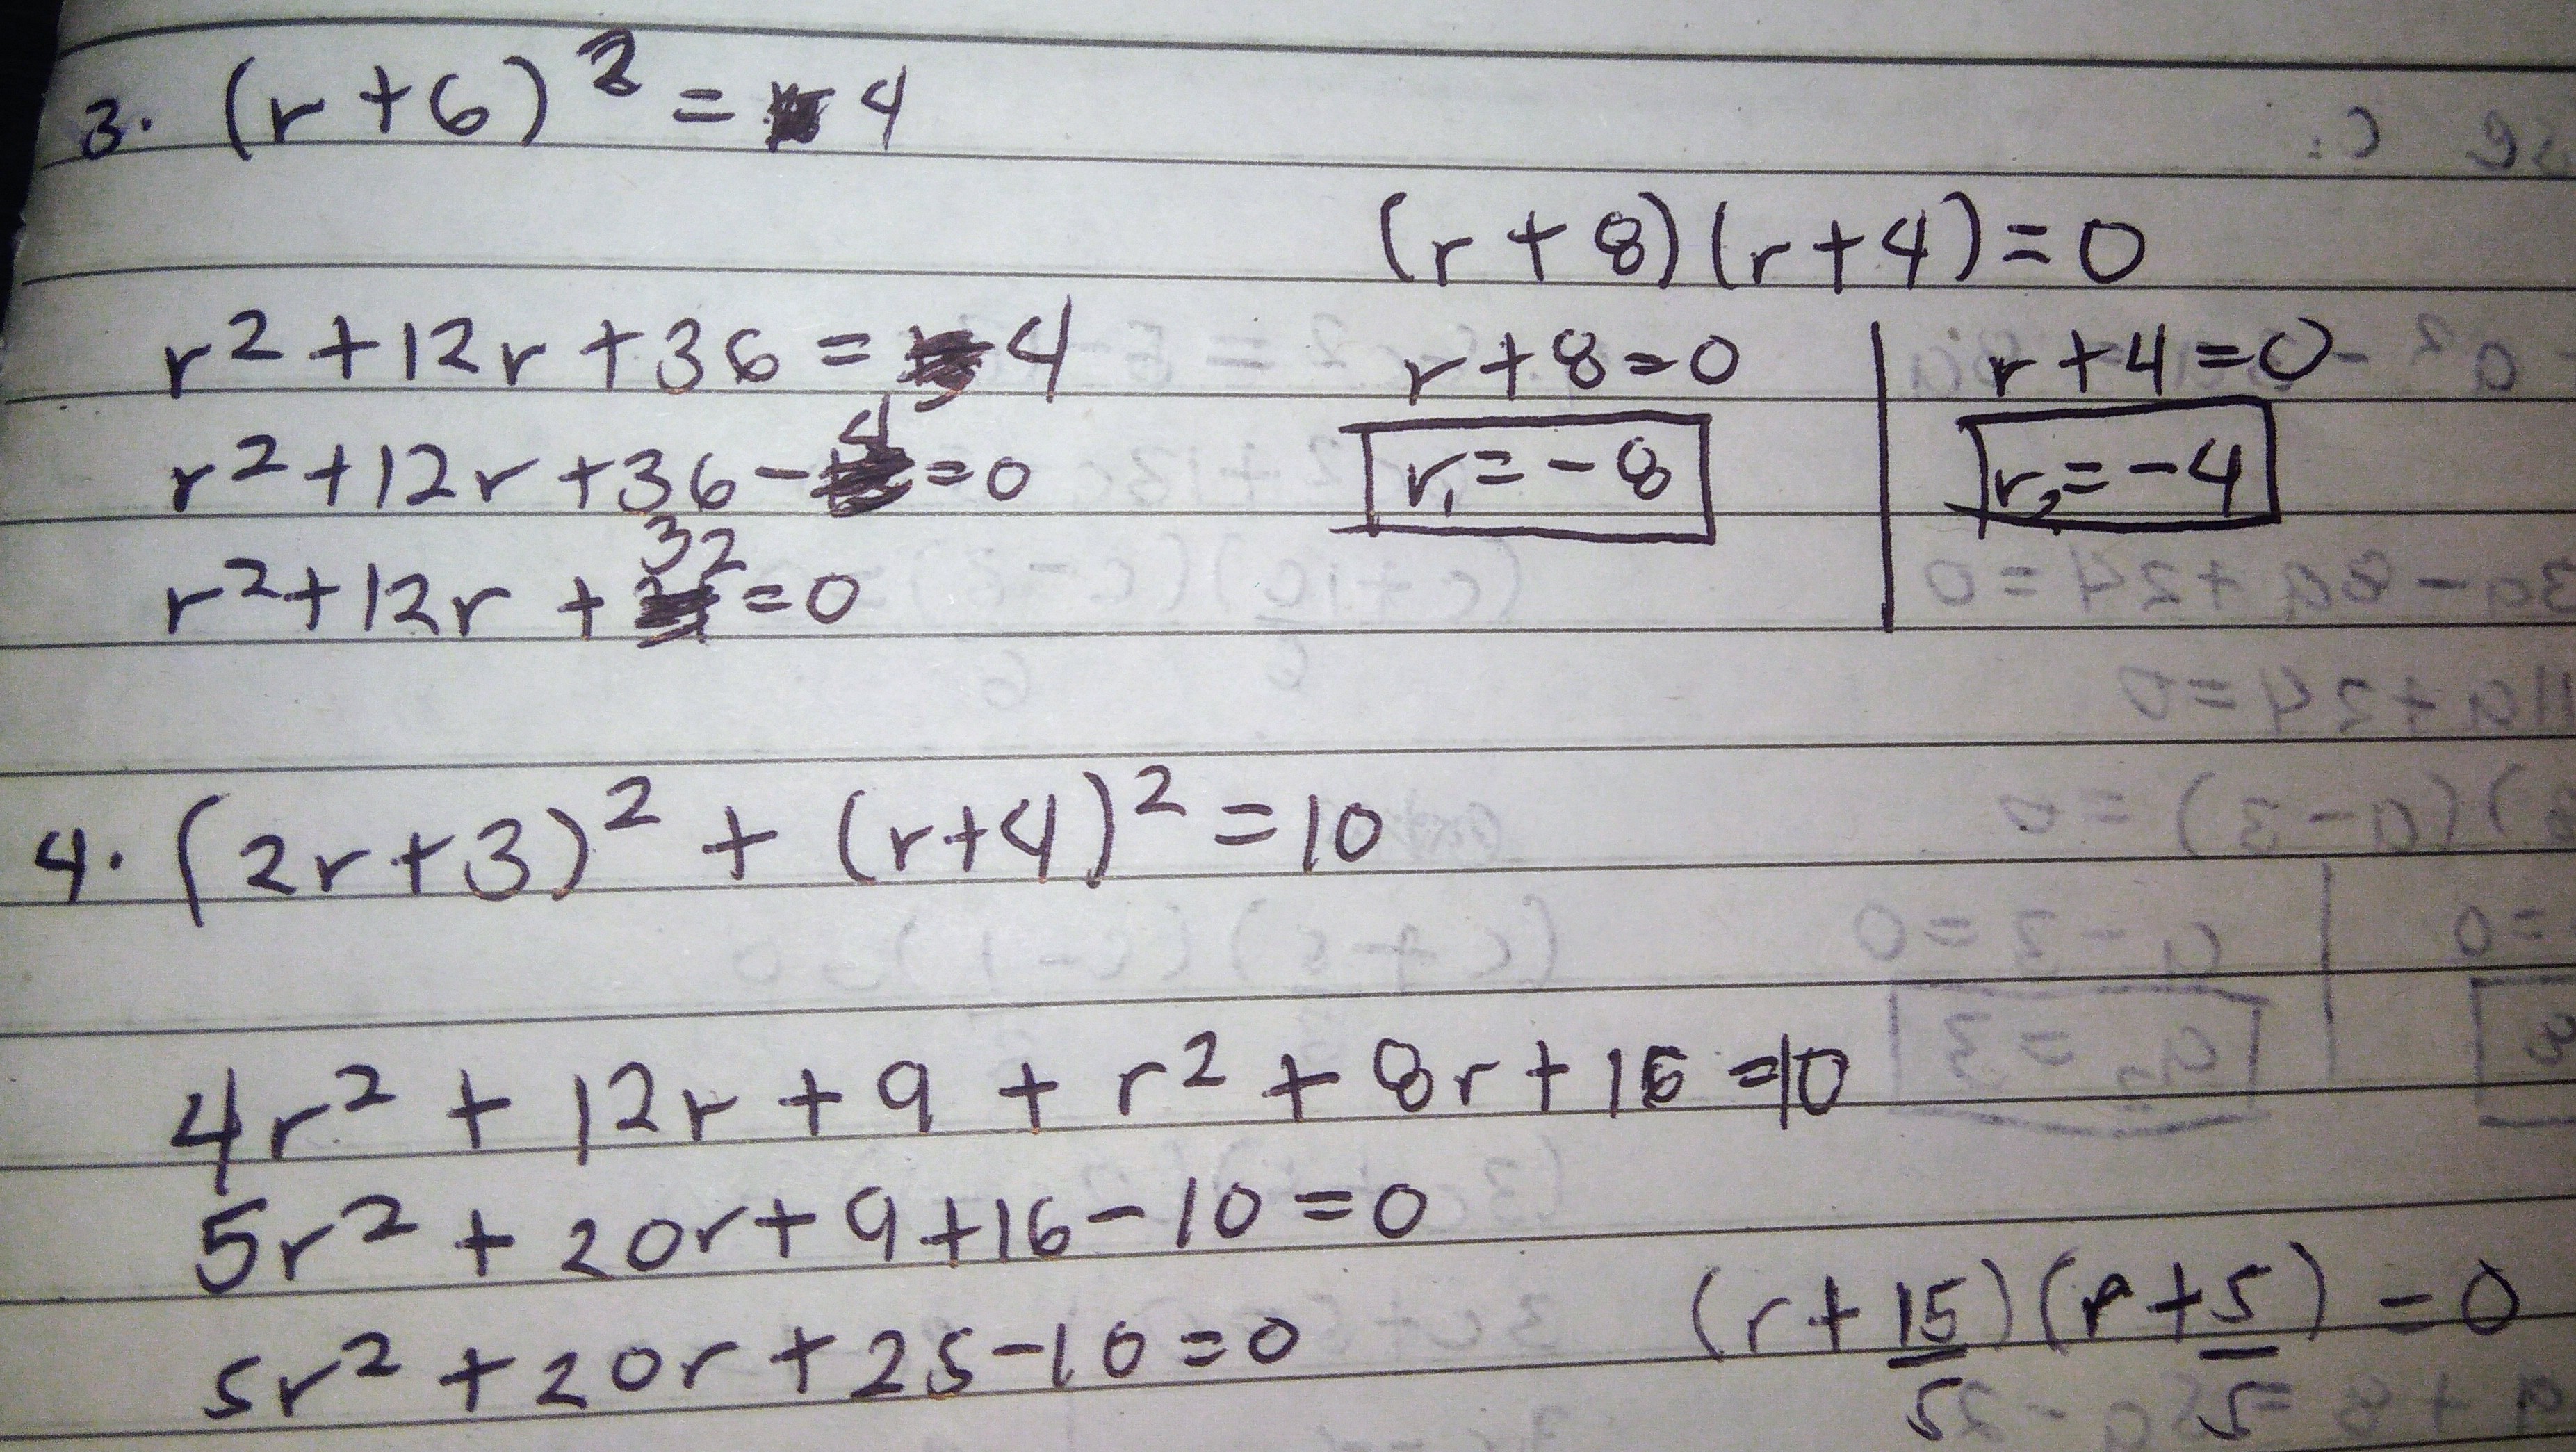 3. (r+6)² = 4
r²+12r+36 = 4
r²+12r+36-4=0
r²+12r+32=0
(r+8)(r+4)=0
r+8=0 | r+4=0
r₁=-8 | r₂=-4
4. (2r+3)² + (r+4)² =10
4r² + 12r + 9 + r² + 8r+16 =10
5r² + 20r+9+16-10=0
5r²+20r+25-10=0
(r+15/5)(r+5/5)=0